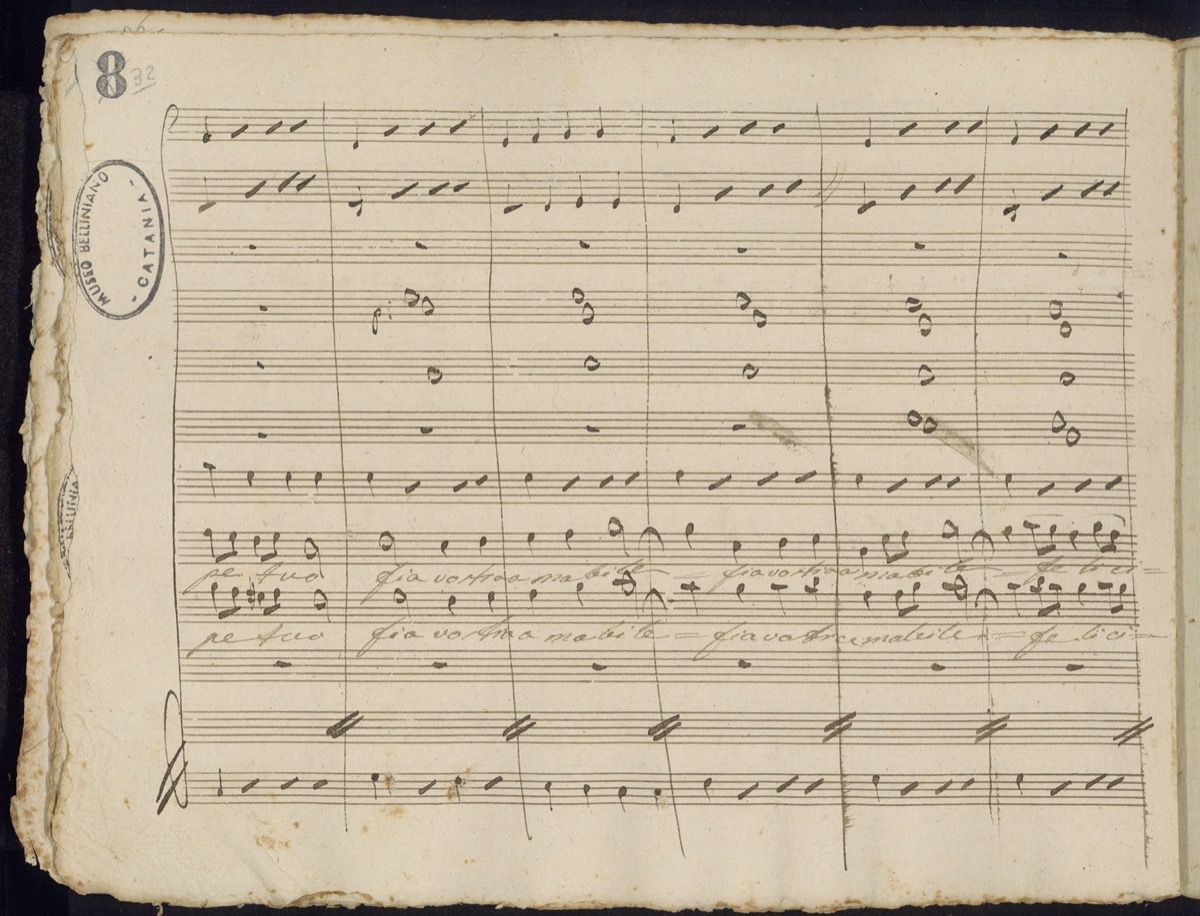 8 32
MUSEO BELLINIANO
- CATANIA -
pe tuo fia vostra a ma bile = fia vostra a ma bile = fe li ci =
pe tuo fia vo stra a ma bile = fia vostra a ma bile = fe li ci =